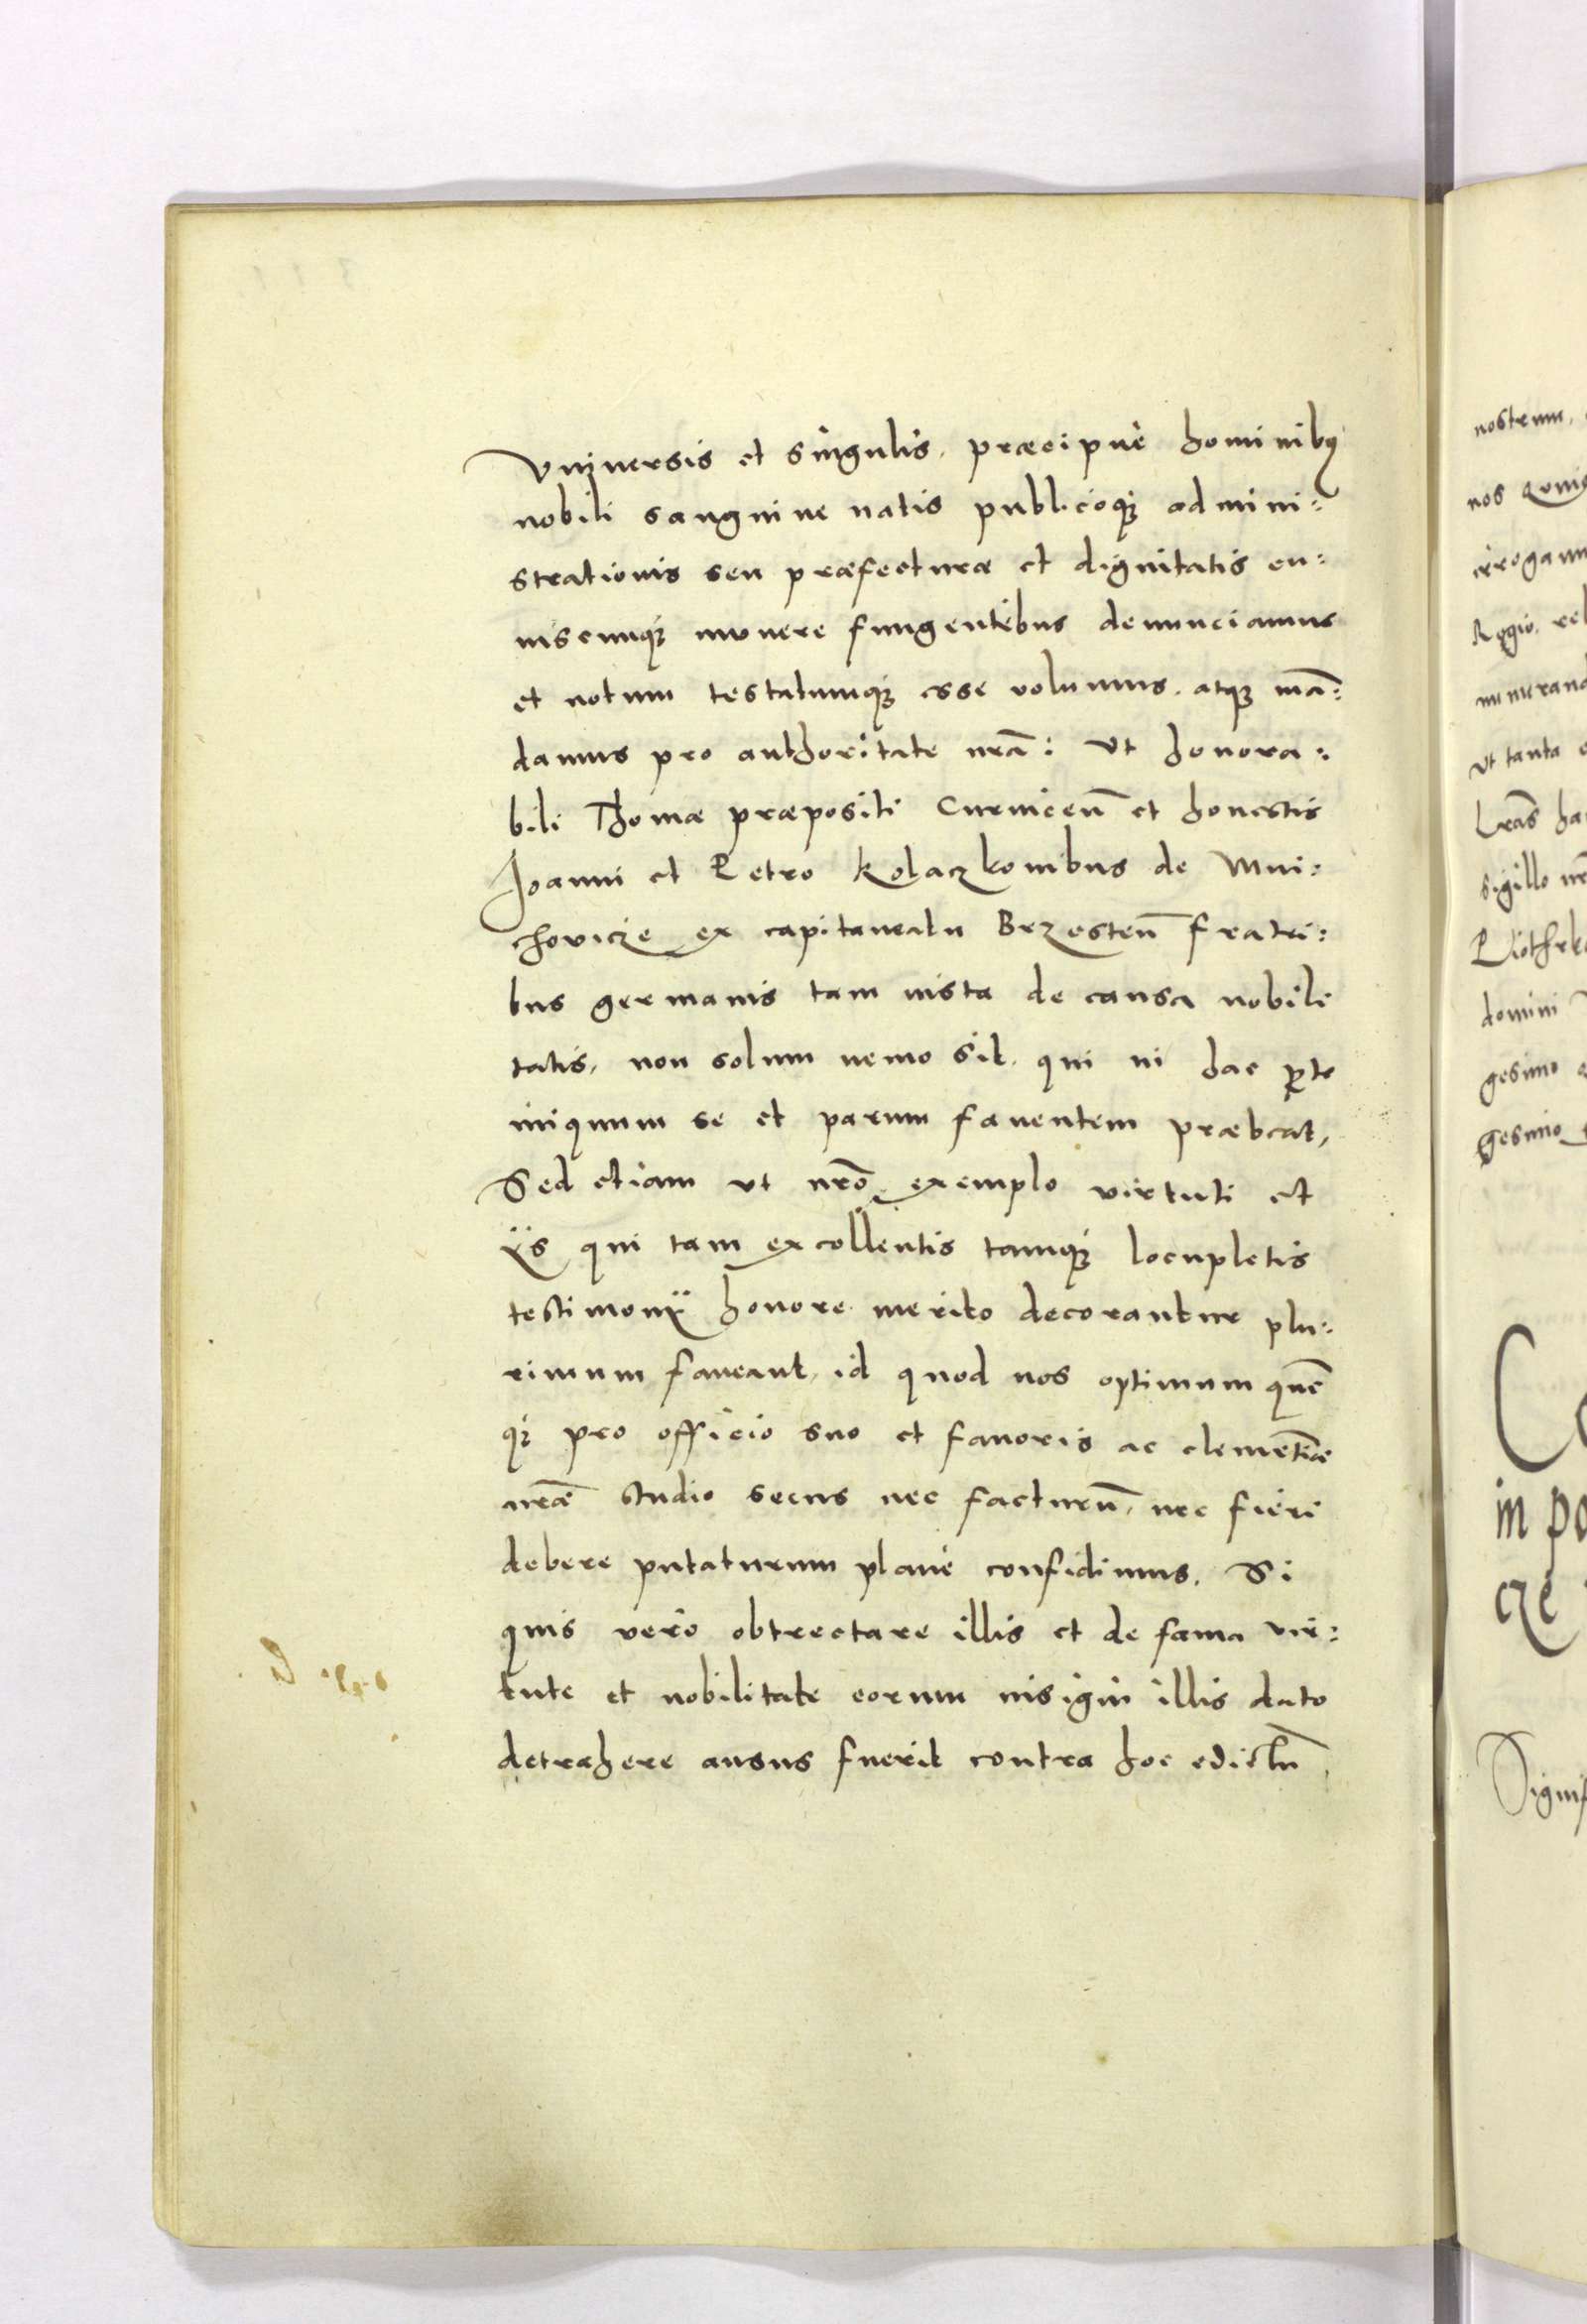 Vniuersis et singulis, præcipuè hominibus
nobili sanguine natis publicoq; admini:
strationis seu præfecturæ et dignitatis cu:
iuscunq; munere fungentibus denunciamus
et notum testatumq; esse volumus, atq; mā:
damus pro authoritate nrā: Vt honora:
bili Thomæ præposito Curniceñ et honestis
Joanni et Petro Kolaczkonibus de Mni:
chovicze ex capitaneatu Brzesteñ fratri:
bus germanis tam iusta de causa nobili
tatis, non solum nemo sit, qui in hac pte
iniquum se et parum fauentem præbeat,
Sed etiam vt nrō exemplo virtuti et
ijs qui tam excellentis tamq; locupletis
testimonij honore merito decorantur plu:
rimum faueant, id quod nos optimum quē
q; pro officio suo et fauoris ac clemētiæ
nræ̃ studio secus nec facturū, nec fieri
debere putaturum planè confidimus. Si
quis verò obtrectare illis et de fama vir:
tute et nobilitate eorum insigni illis dato
detrahere ausus fuerit contra hoc edictū
nostrum,
nos
irrogam
Regio, rel
munerand
vt tanta
Lrās ha
sigillo nr̃
Piothrko
domini
gesimo
gesimo
in po
cze
Signif